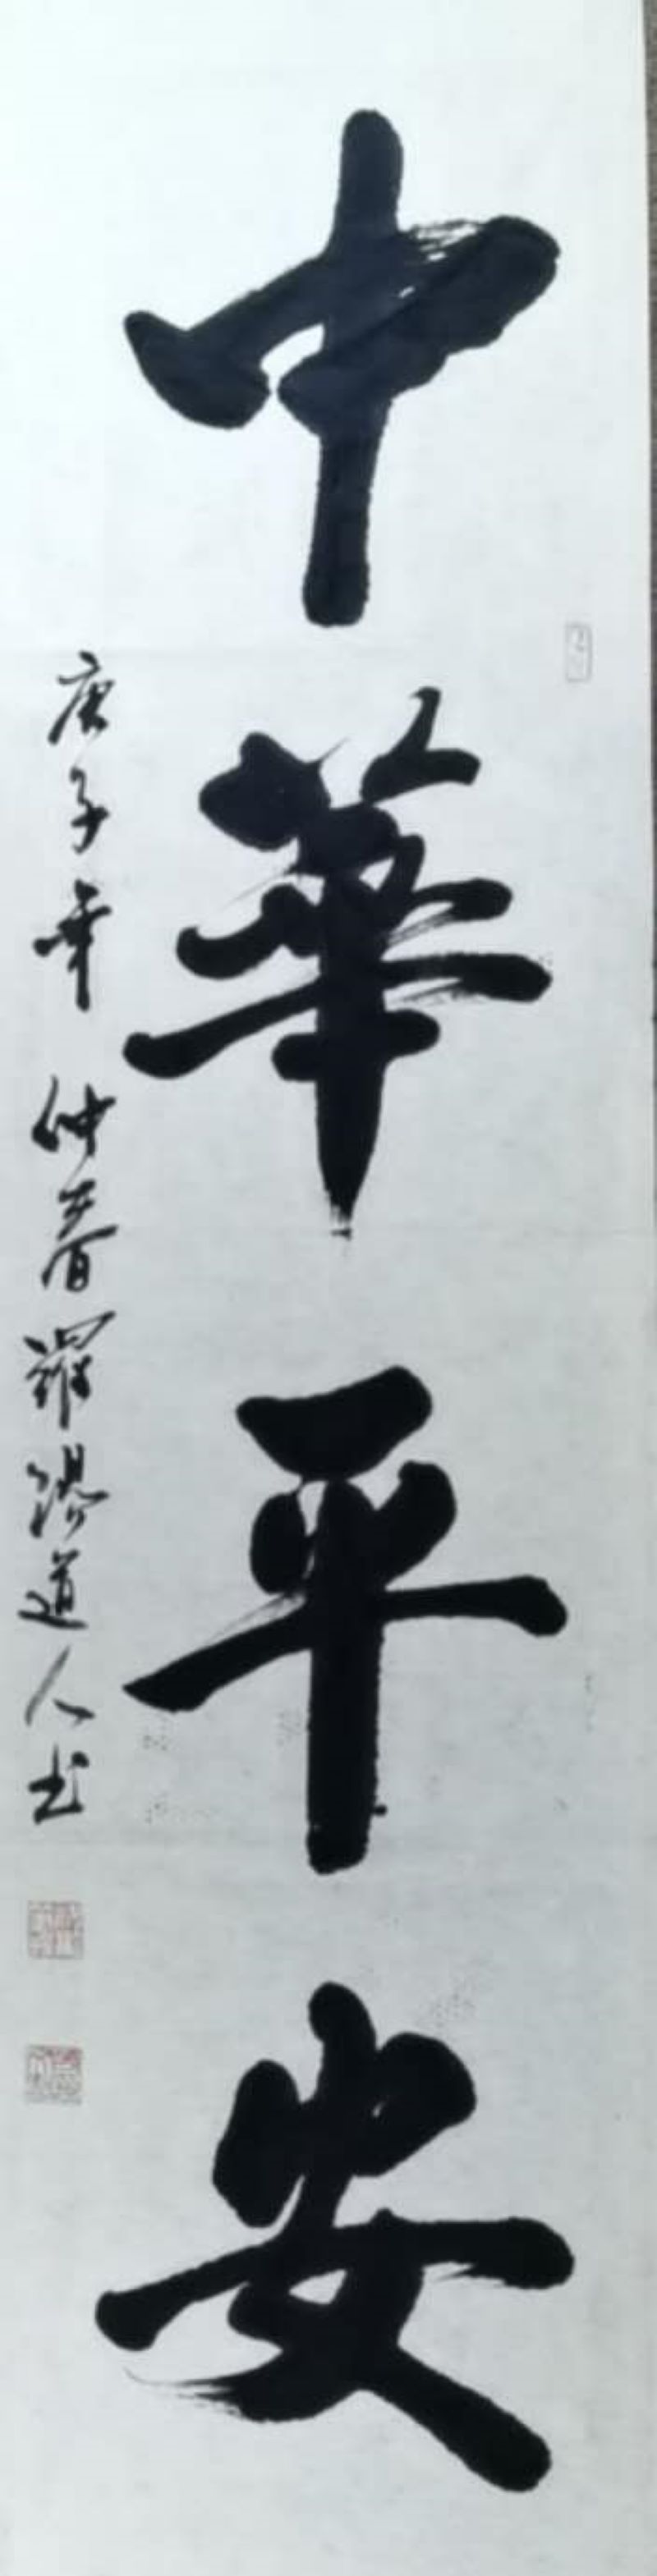 中華平安
庚子年仲春羅浮道人书